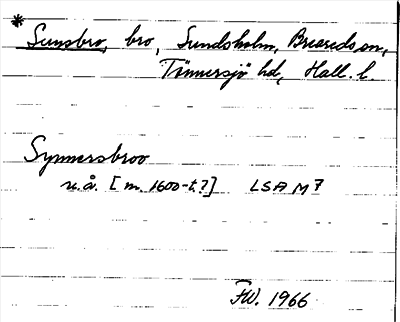 * Sunsbro, bro, Sundsholm, Breareds sn,
Tönnersjö hd, Hall. l.
Synnersbroo
u.å. [m. 1600-t.?] LSA M 7
FW. 1966